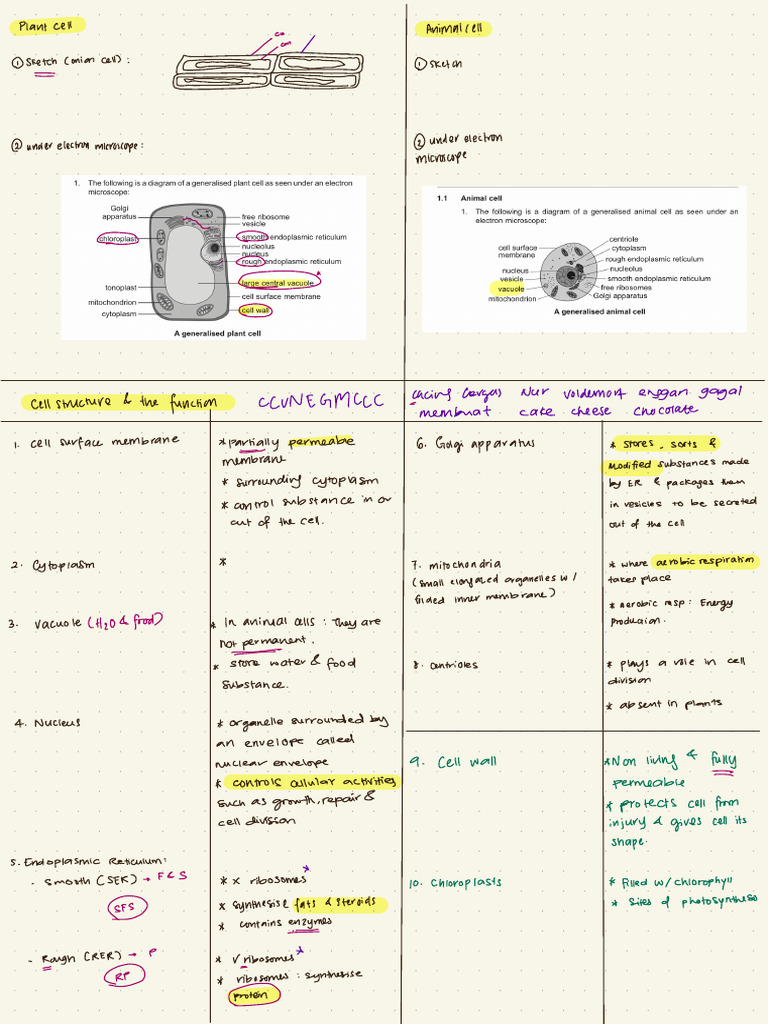 Plant cell
① Sketch (onion cell) :
cw
cm
② under electron microscope:
1. The following is a diagram of a generalised plant cell as seen under an electron
microscope:
Golgi
apparatus
chloroplast
tonoplast
mitochondrion
cytoplasm
free ribosome
vesicle
smooth endoplasmic reticulum
nucleolus
nucleus
rough endoplasmic reticulum
large central vacuole
cell surface membrane
cell wall
A generalised plant cell
Animal cell
① sketch
② under electron
microscope
1.1 Animal cell
1. The following is a diagram of a generalised animal cell as seen under an
electron microscope:
cell surface
membrane
nucleus
vesicle
vacuole
mitochondrion
centriole
cytoplasm
rough endoplasmic reticulum
nucleolus
smooth endoplasmic reticulum
free ribosomes
Golgi apparatus
A generalised animal cell
Cell structure & the function
CCVNEGMCCC
cacing Nur voldemort gagal
membuat cake cheese chocolate
1. cell surface membrane
* partially permeable
membrane
* surrounding cytoplasm
* control substance in or
out of the cell.
2. Cytoplasm
*
3. vacuole (H2O & food)
* In animal cells : They are
not permanent.
* store water & food
substance.
4. Nucleus
* organelle surrounded by
an envelope called
nuclear envelope
* controls cellular activities
such as growth, repair &
cell division
5. Endoplasmic Reticulum:
- smooth (SER) → F & S
SFS
* x ribosomes
* synthesise fats & steroids
* contains enzymes
- Rough (RER) → P
RP
* √ ribosomes
* ribosomes : synthesise
protein
6. Golgi apparatus
* stores, sorts &
modified substances made
by ER & packages them
in vesicles to be secreted
out of the cell
7. mitochondria
(small elongated organelles w/
folded inner membrane)
* where aerobic respiration
takes place
* aerobic resp : Energy
production.
8. centrioles
* plays a role in cell
division
* absent in plants
9. Cell wall
* Non living & fully
permeable
* protects cell from
injury & gives cell its
shape.
10. Chloroplasts
* filled w/ chlorophyll
* sites of photosynthesis